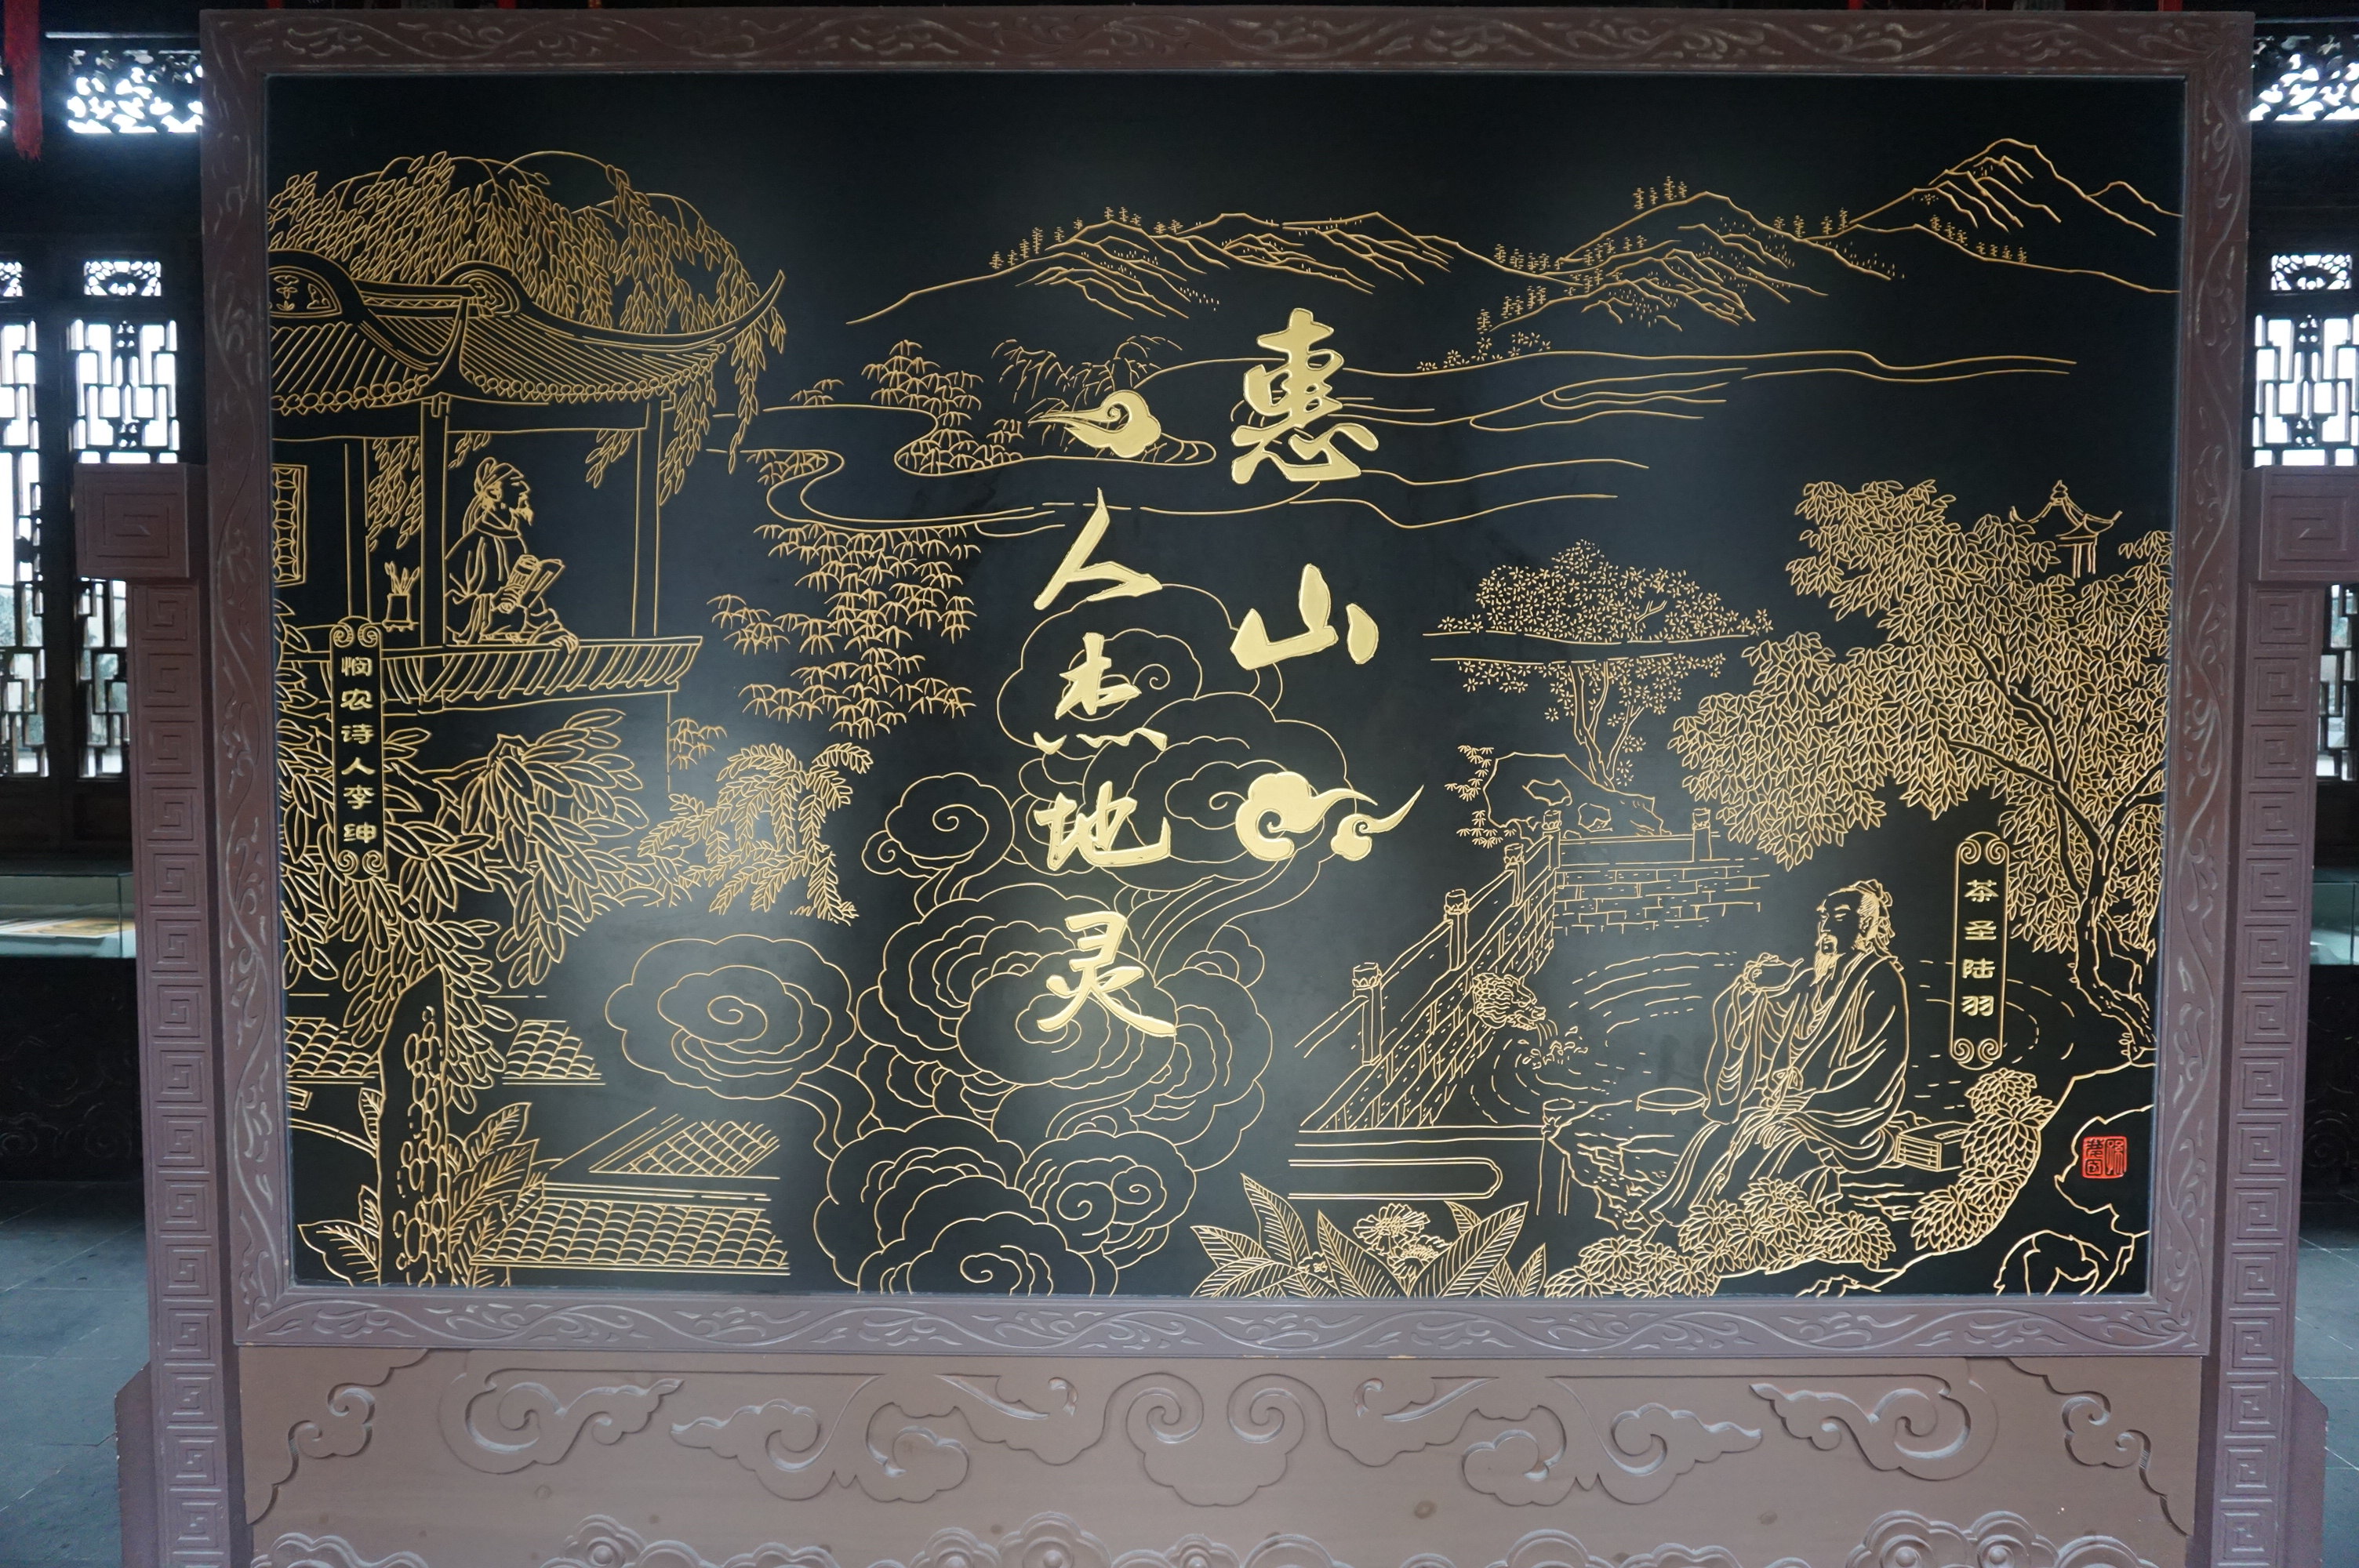 惠山
人杰地灵
茶圣陆羽
悯农诗人李绅